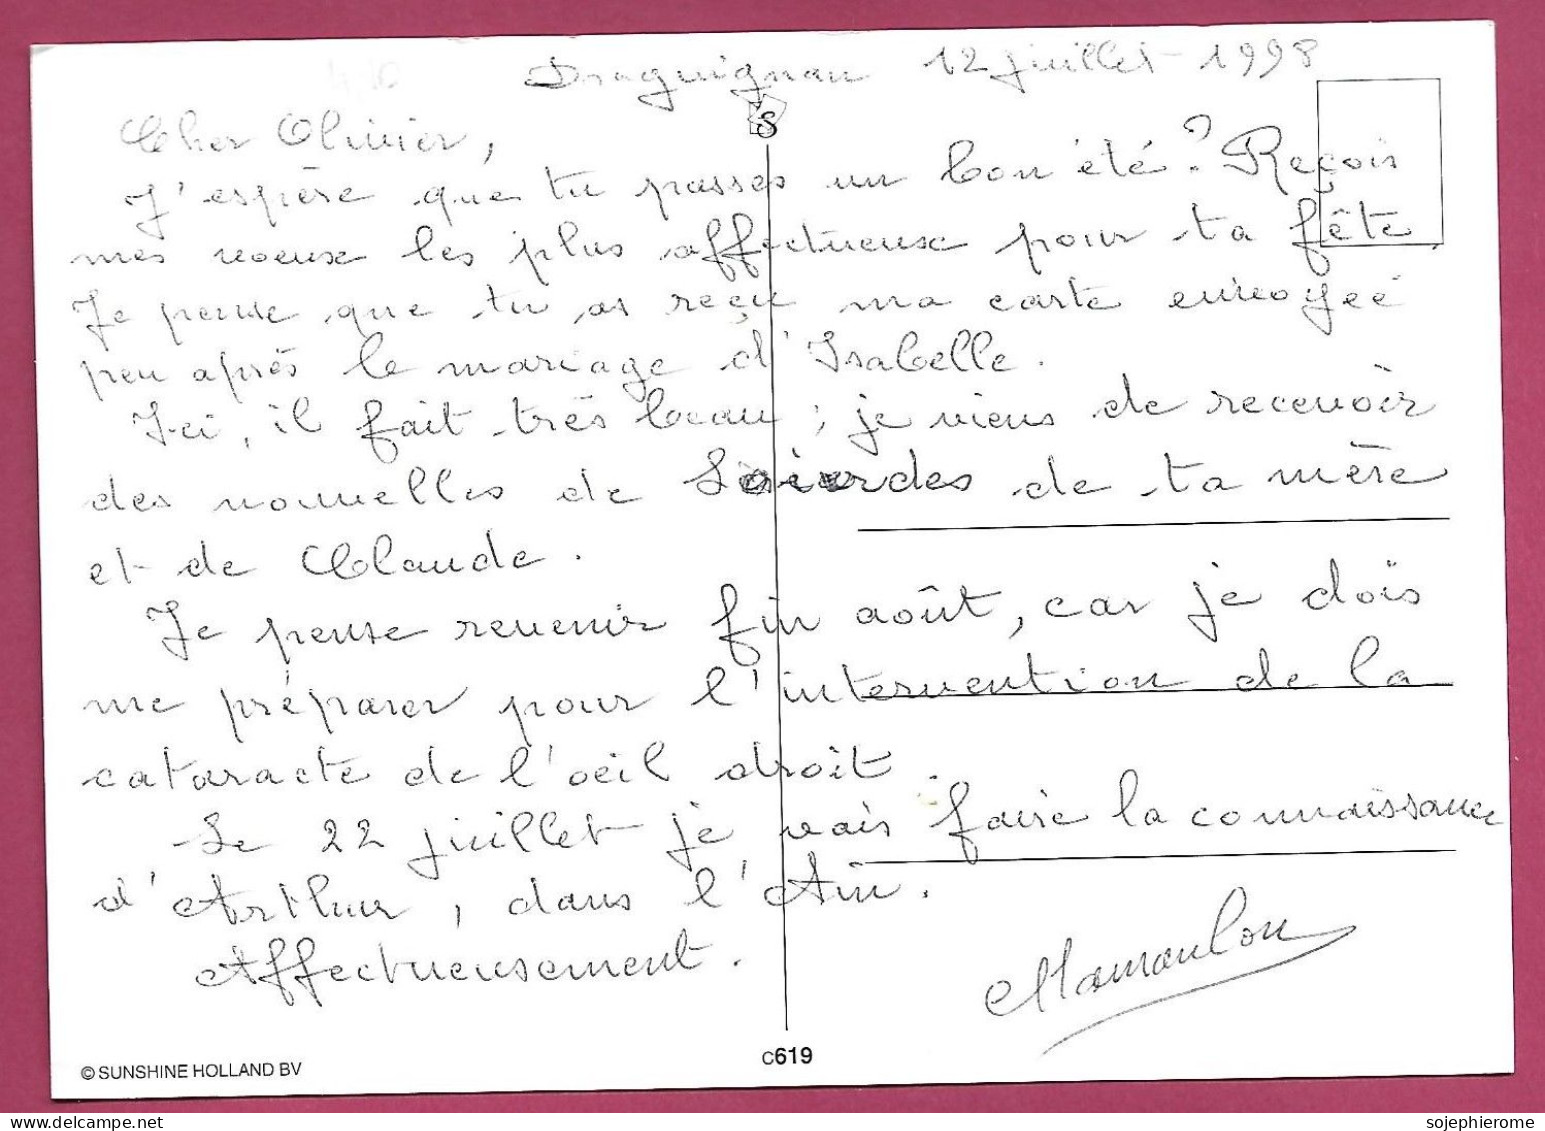 Draguignan 12 juillet 1998
Cher Olivier,
J'espère que tu passes un bon été ? Reçois
mes voeux les plus affectueux pour ta fête.
Je pense que tu as reçu ma carte envoyée
peu après le mariage d'Isabelle.
Ici, il fait très beau ; je viens de recevoir
des nouvelles de Lourdes de ta mère
et de Claude.
Je pense revenir fin août, car je dois
me préparer pour l'intervention de la
cataracte de l'oeil droit.
Le 22 juillet je vais faire la connaissance
d'Arthur, dans l'Ain.
Affectueusement.
Mamanlou
© SUNSHINE HOLLAND BV
C619
S
sojephierome